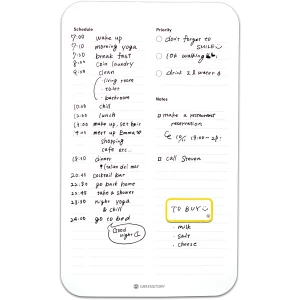 Schedule
7:00 wake up
7:10 morning yoga
7:30 break fast
8:00 coin laundry
9:00 clean
· living room
· toilet
· bathroom
10:00 chill
12:00 lunch
13:00 make up, set hair
14:00 meet up Emma
shopping
cafe etc..
18:30 dinner
20:45 cocktail bar
22:30 go back home
22:45 take a shower
23:30 night yoga
& chill
24:00 go to bed
Good
night
Priority
don't forget to
SMILE
10k walking
drink 2L water
Notes
make a restaurant
reservation
call Steven
TO BUY
· milk
· salt
· cheese